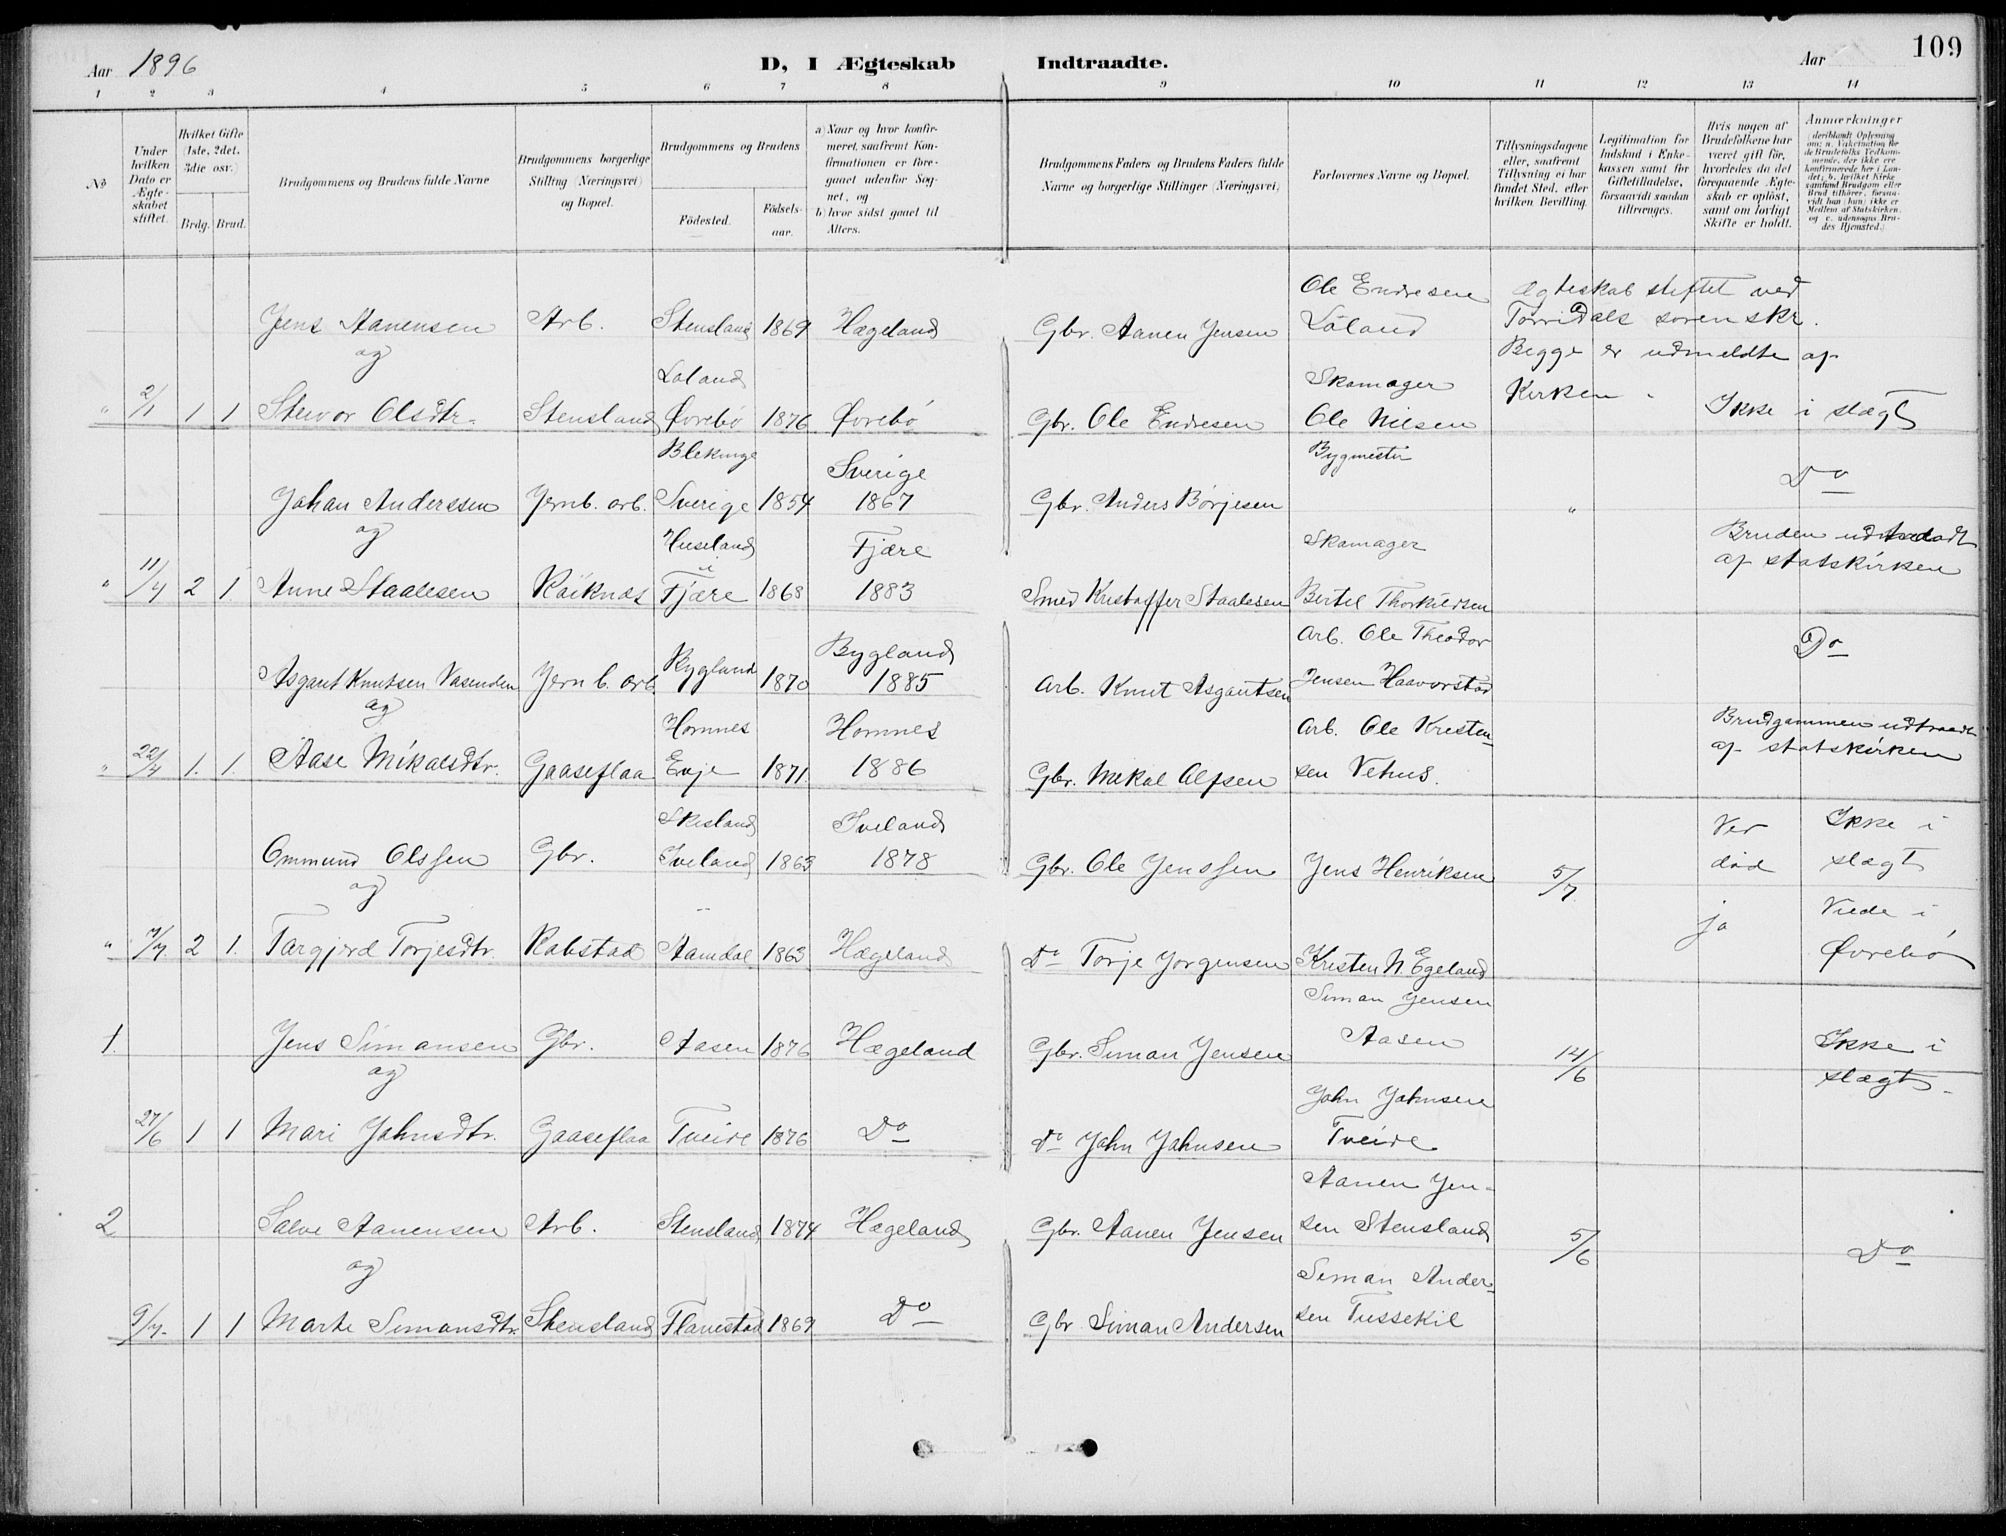 Aar 1896
D, I Ægteskab Indtraadte.
Aar
109
1 2 3 4 5 6 7 8 9 10 11 12 13 14
No
Under hvilken Dato er Ægteskabet stiftet.
Hvilket Gifte (1ste, 2det, 3die osv.)
Brdg. Brud.
Brudgommens og Brudens fulde Navne
Brudgommens borgerlige Stilling (Næringsvei) og Bopæl.
Brudgommens og Brudens
Fødested.
Fødselsaar.
a) Naar og hvor konfirmeret, saafremt Konfirmationen er foregaaet udenfor Sognet, og
b) hvor sidst gaaet til Alters.
Brudgommens Faders og Brudens Faders fulde Navne og borgerlige Stillinger (Næringsvei)
Forlovernes Navne og Bopæl.
Tillysningsdagene eller, saafremt Tillysning ei har fundet Sted, efter hvilken Bevilling.
Legitimation for Indskud i Enkekassen samt for Giftetilladelse, forsaavidt saadan tiltrænges.
Hvis nogen af Brudefolkene har været gift før, hvorledes da det foregaaende Ægteskab er opløst, samt om lovligt Skifte er holdt.
Anmærkninger
(deriblandt Oplysning om: a. Vakcination for de Brudefolks Vedkommende, der ikke ere konfirmerede her i Landet; b. hvilket Kirkesamfund Brudgom eller Brud tilhører, forsaavidt han (hun) ikke er Medlem af Statskirken, og c. udensogns Brudes Hjemsted.)
Jens Aanensen Arb. Stensland 1869 Hægeland Gbr. Aanen Jensen
Ole Endresen
Løland
Ægteskab stiftet ved
Torridals sorenskr.
Begge er udmeldte af
Kirken.
og
" 2/1 1 1 Steivor Olsdtr. Stensland
Løland
Øvrebø 1876 Øvrebø Gbr. Ole Endresen
Skomager
Ole Nilsen
Ikke i slægt
Johan Anderssen Jernb. arb.
Blekinge
Sverige 1854
Sverige
1867
Gbr. Anders Børjesen
Bygmester
"
Do
og
" 11/4 2 1. Anne Staalesen Røiknæs
Fjære 1868
Fjære
1883
Smed Kristoffer Staalesen
Skomager
Bertel Thorkildsen
Bruden udtraadt
af statskirken
Asgaut Knutsen Vasenden Jernb. arb.
Bygland 1870
Bygland
1885
Arb. Knut Asgautsen
Arb. Ole Theodor
Jensen Haavorstad
Do
og
" 22/4 1. 1. Aase Mikalsdtr. Gaaseflaa
Homnes
Evje 1871
Homnes
1886
Gbr. Mikal Alfsen
Arb. Ole Kristensen Vehus.
Brudgommen udtraadt
af statskirken
Ommund Olssen Gbr.
Skisland
Iveland 1863
Iveland
1878
Gbr. Ole Jenssen Jens Henriksen 5/7.
Ved
død
Ikke i
slægt
og
" 7/7 2 1. Targjerd Torjesdtr. Robstad Aamdal 1863 Hægeland
Do Torje Jørgensen Kristen N. Egeland
ja
Viede i
Øvrebø
1. Jens Simonsen Gbr. Aasen 1876 Hægeland Gbr. Simon Jensen
Simon Jensen
Aasen
14/6
Ikke i
slægt.
og
27/6 1 1 Mari Johnsdtr. Gaaseflaa Tveide 1876 Do Do John Johnsen
John Johnsen
Tveide
2 Salve Aanensen Arb. Stensland 1874 Hægeland Gbr. Aanen Jensen
Aanen Jensen Stensland
5/6
Do
og
9/7. 1 1 Marte Simonsdtr. Stensland Flanestad 1869 Do Gbr Simon Andersen
Simon Andersen Tussekil